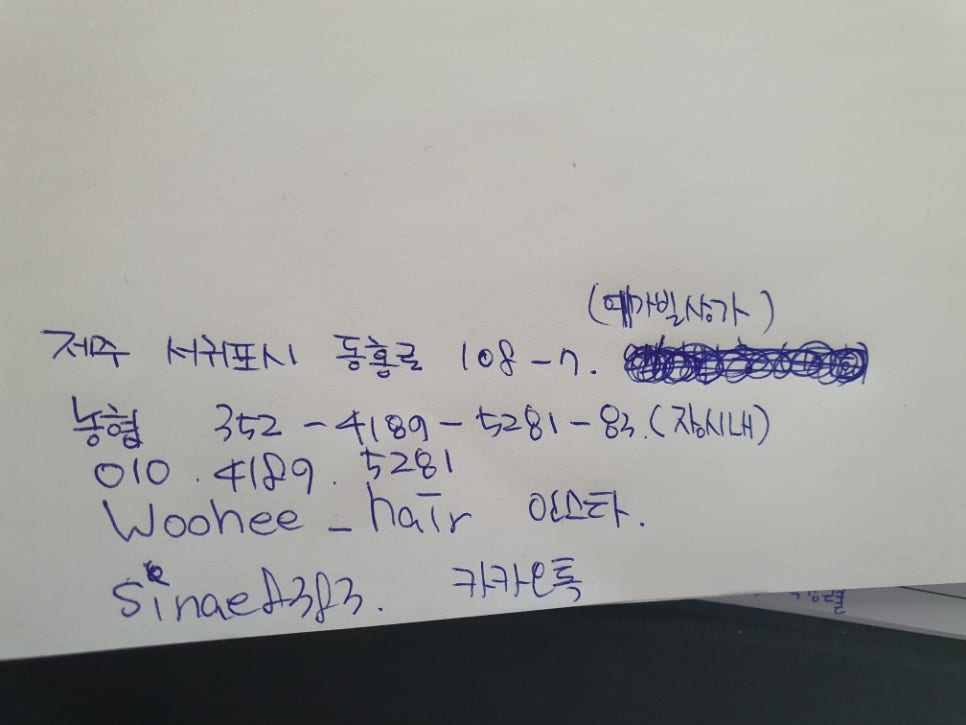 (예가빌상가)
제주 서귀포시 동홍로 108-7.
농협 352-4189-5281-83.(장시내)
010.4189.5281
Woohee_hair 인스타.
sinae8383. 카카오톡